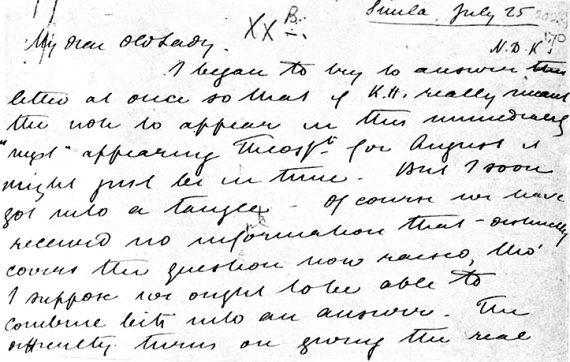 XX B.
Simla, July 25
My dear Old Lady.
N.D.K's
I began to try to answer this
letter at once so that if K.H. really meant
the note to appear in this immediately
"next" appearing Theosft. for August it
might just be in time. But I soon
got into a tangle – Of course we have
received no information that distinctly
covers the question now raised, tho'
I suppose we ought to be able to
combine bits into an answer. The
difficulty turns on giving the real